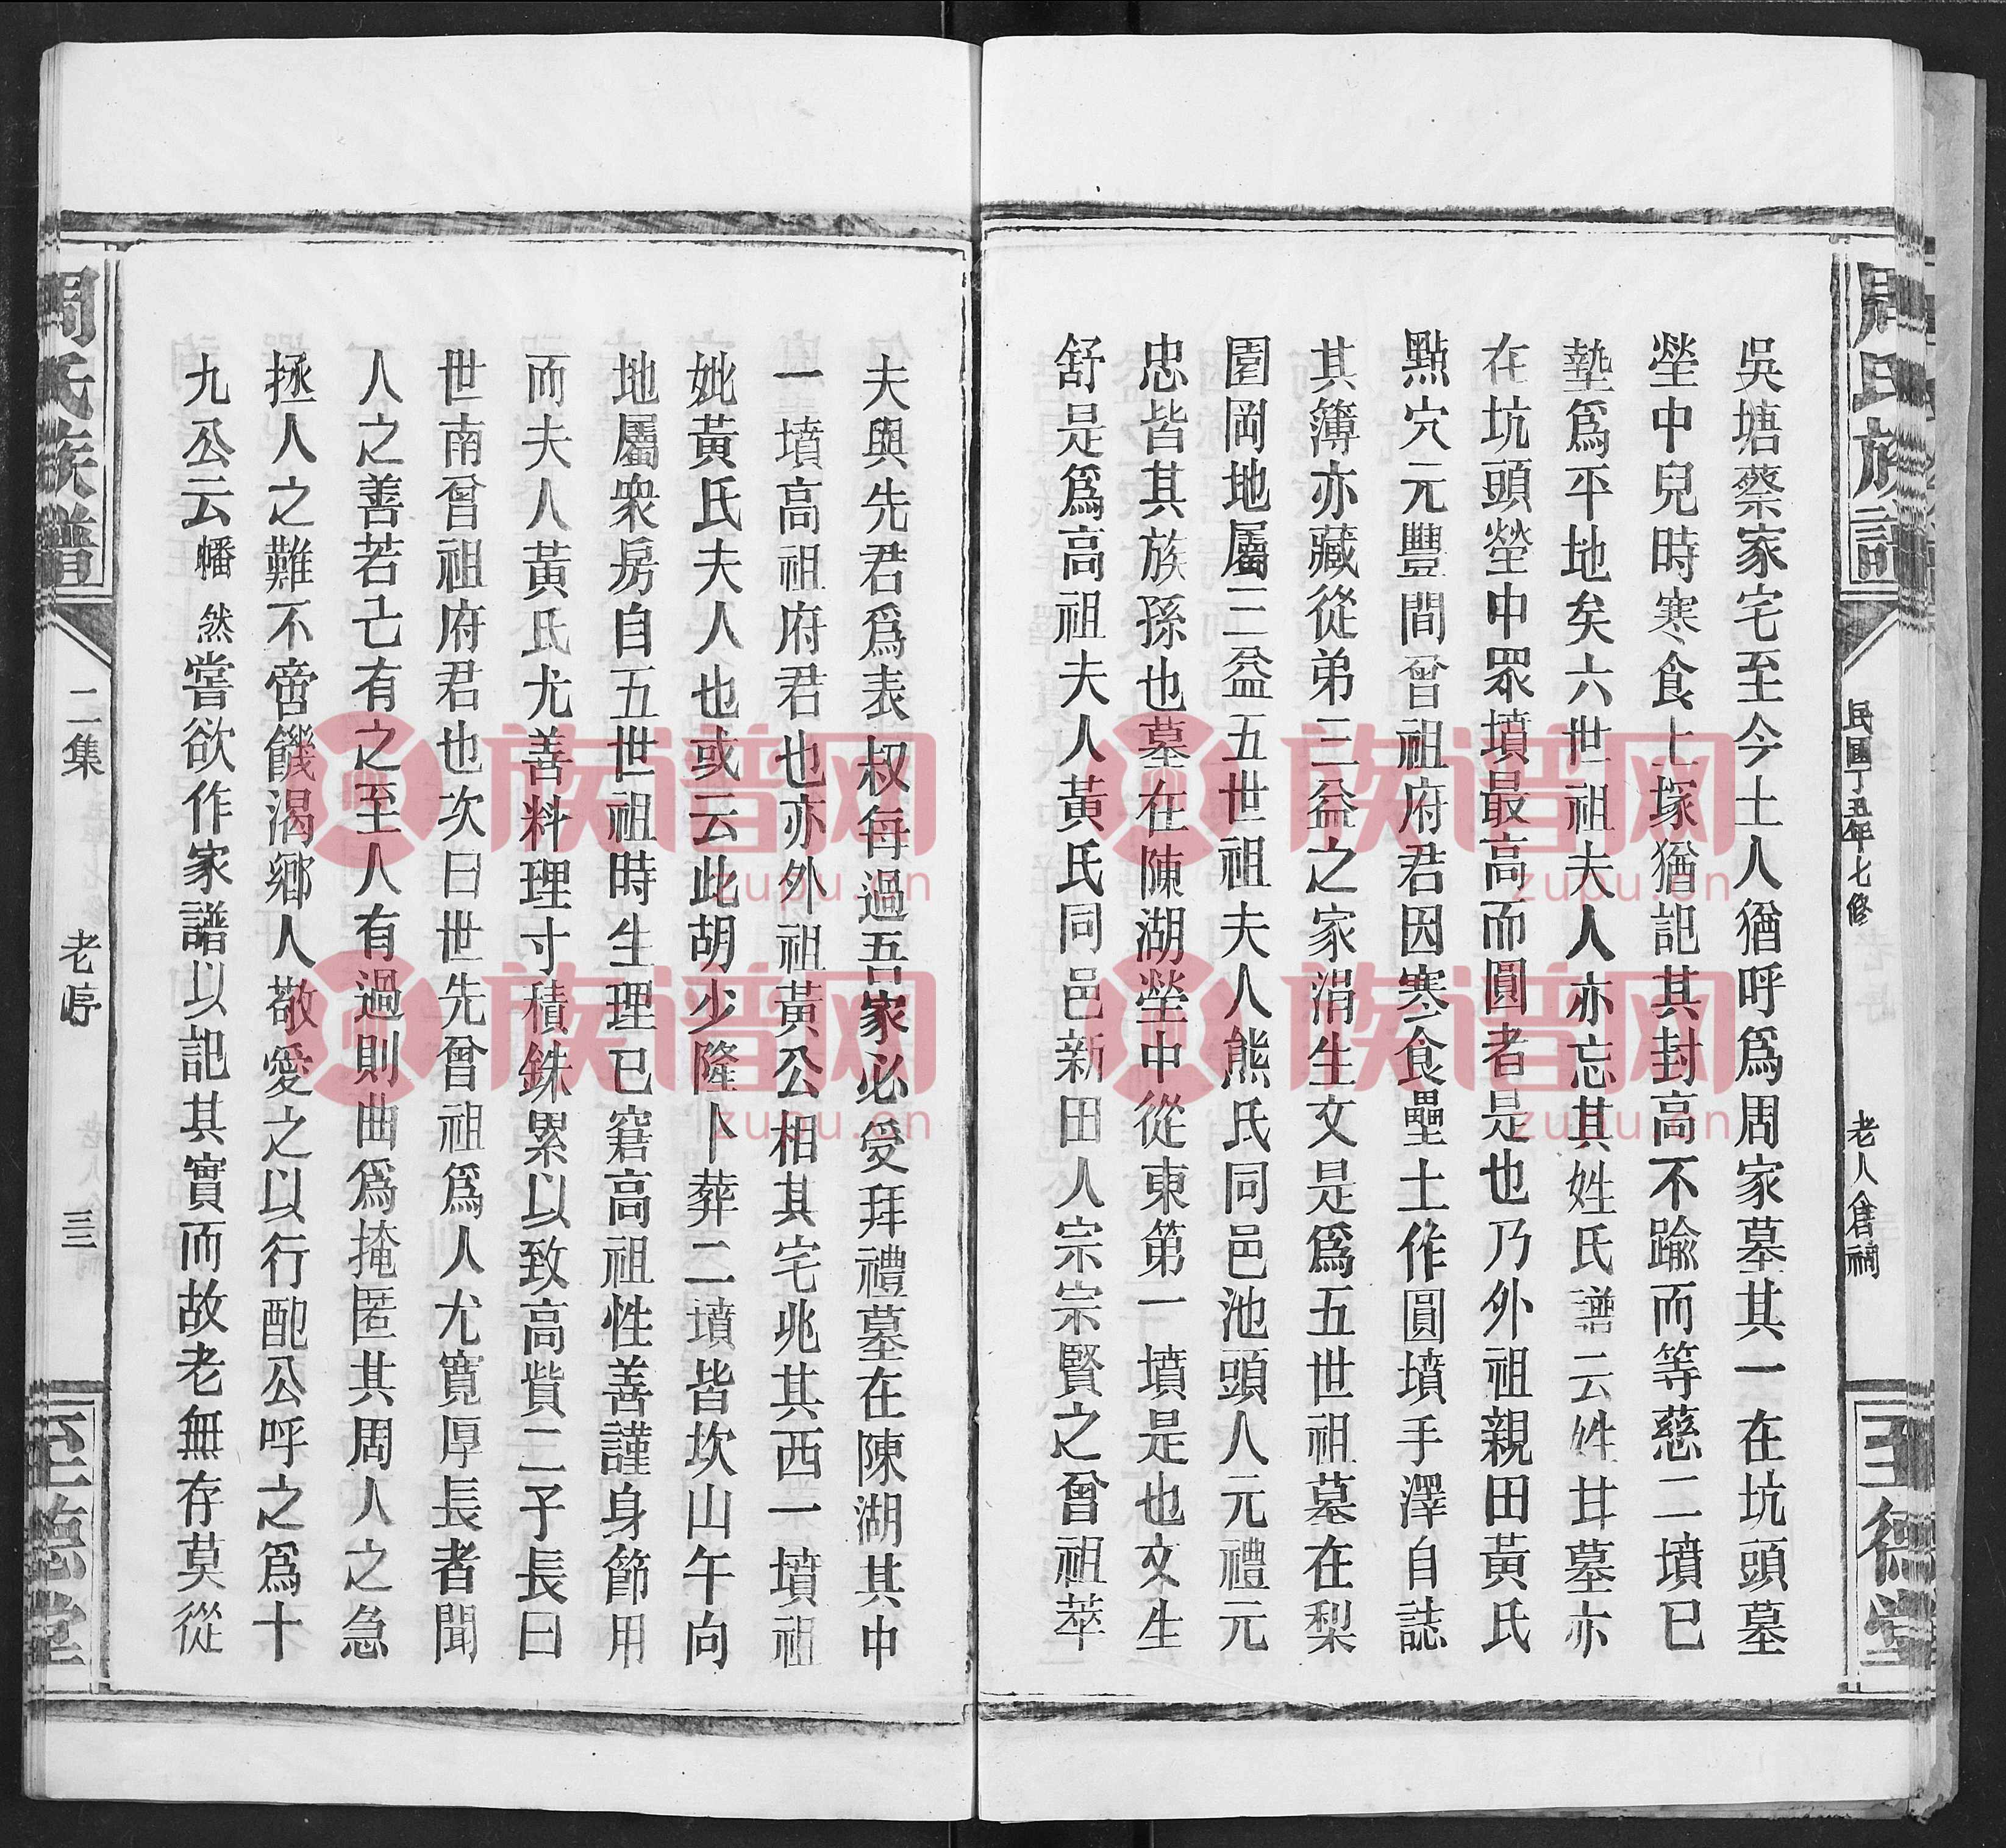 周氏族譜
民國丁丑年七修
老人倉祠
至德堂
吳塘蔡家宅至今土人猶呼爲周家墓其一在坑頭墓
塋中兒時寒食上塚猶記其封高不踰而等慈二墳已
墊爲平地矣六世祖夫人亦忘其姓氏譜云姓甘墓亦
在坑頭塋中眾墳最高而圓者是也乃外祖親田黃氏
點穴元豐間曾祖府君因寒食壘土作圓墳手澤自誌
其簿亦藏從弟三益之家涓生文是爲五世祖墓在梨
園岡地屬三益五世祖夫人熊氏同邑池頭人元禮元
忠皆其族孫也墓在陳湖塋中從東第一墳是也文生
舒是爲高祖夫人黃氏同邑新田人宗宗賢之曾祖萃
夫與先君爲表叔每過吾家必受拜禮墓在陳湖其中
一墳高祖府君也亦外祖黃公相其宅兆其西一墳祖
妣黃氏夫人也或云此胡少隆卜葬二墳皆坎山午向
地屬衆房自五世祖時生理已窘高祖性善謹身節用
而夫人黃氏尤善料理寸積銖累以致高貲二子長曰
世南曾祖府君也次曰世先曾祖爲人尤寬厚長者聞
人之善若己有之至人有過則曲爲掩匿其周人之急
拯人之難不啻饑渴鄉人敬愛之以行配公呼之爲十
九公云皤然嘗欲作家譜以記其實而故老無存莫從
周氏族譜
二集
老序
三
至德堂
族谱网
zupu.cn
族谱网
zupu.cn
族谱网
zupu.cn
族谱网
zupu.cn